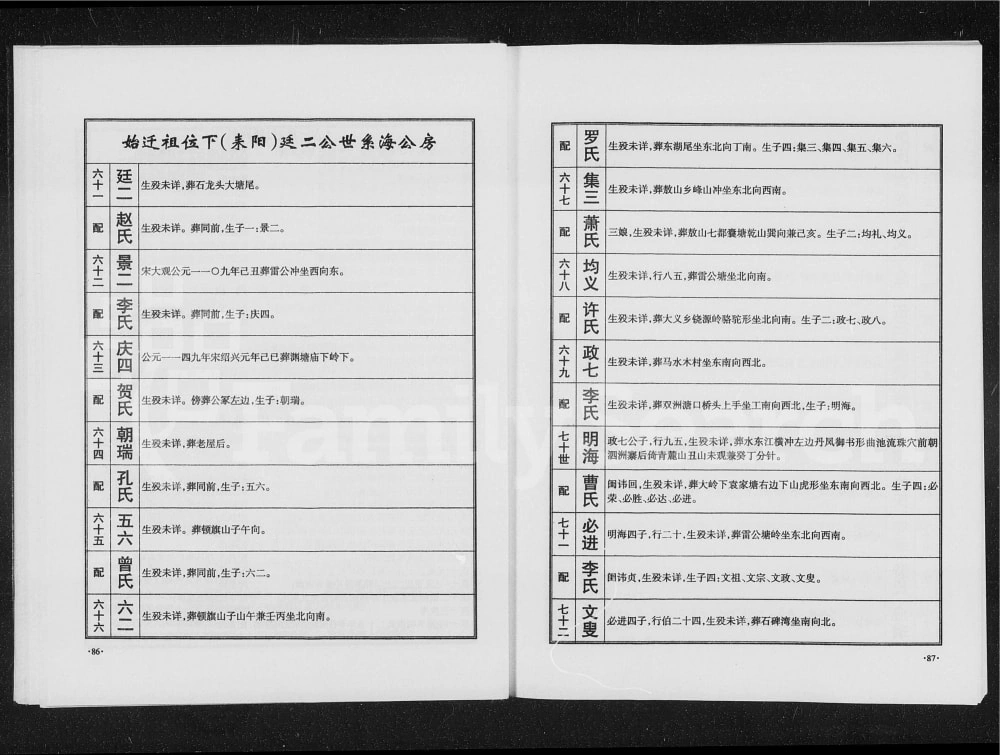 始迁祖位下(耒阳)廷二公世系海公房
六十一 廷二 生殁未详,葬石龙头大塘尾。
配 赵氏 生殁未详。葬同前,生子一:景二。
六十二 景二 宋大观公元一一〇九年己丑葬雷公冲坐西向东。
配 李氏 生殁未详。葬同前,生子:庆四。
六十三 庆四 公元一一四九年宋绍兴元年己巳葬渊塘庙下岭下。
配 贺氏 生殁未详。傍葬公冢左边,生子:朝瑞。
六十四 朝瑞 生殁未详,葬老屋后。
配 孔氏 生殁未详,葬同前,生子:五六。
六十五 五六 生殁未详。葬顿旗山子午向。
配 曾氏 生殁未详,葬同前,生子:六二。
六十六 六二 生殁未详,葬顿旗山子山午兼壬丙坐北向南。
·86·
配 罗氏 生殁未详,葬东湖尾坐东北向丁南。生子四:集三、集四、集五、集六。
六十七 集三 生殁未详,葬敖山乡峰山冲坐东北向西南。
配 萧氏 三娘,生殁未详,葬敖山七都囊塘乾山巽向兼己亥。生子二:均礼、均义。
六十八 均义 生殁未详,行八五,葬雷公塘坐北向南。
配 许氏 生殁未详,葬大义乡铙源岭骆驼形坐北向南。生子二:政七、政八。
六十九 政七 生殁未详,葬马水木村坐东南向西北。
配 李氏 生殁未详,葬双洲溏口桥头上手坐工南向西北,生子:明海。
七十世 明海 政七公子,行九五,生殁未详,葬水东江横冲左边丹凤御书形曲池流珠穴前朝
泗洲寨后倚青麓山丑山未观兼癸丁分针。
配 曹氏 闺讳回,生殁未详,葬大岭下袁家塘右边下山虎形坐东南向西北。生子四:必
荣、必胜、必达、必进。
七十一 必进 明海四子,行二十,生殁未详,葬雷公塘岭坐东北向西南。
配 李氏 闺讳贞,生殁未详,生子四:文祖、文宗、文政、文叟。
七十二 文叟 必进四子,行伯二十四,生殁未详,葬石碑湾坐南向北。
·87·